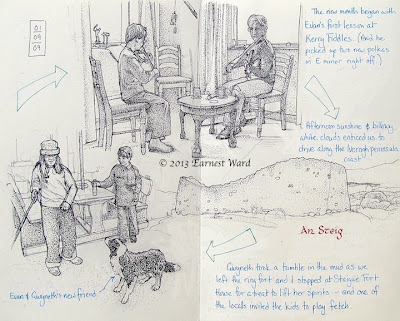 01
09
09
The new month began with
Evan's first lesson at
Kerry Fiddles. (And he
picked up two new polkas
in E minor right off.)
Afternoon sunshine & billowy
white clouds enticed us to
drive along the Iveragh peninsula
coast.
© 2013 Earnest Ward
An Steig
Gwyneth took a tumble in the mud as we
left the ring fort and I stopped at Staigue Fort
House for a treat to lift her spirits – and one of
the locals invited the kids to play fetch.
Evan & Gwyneth's new friend.